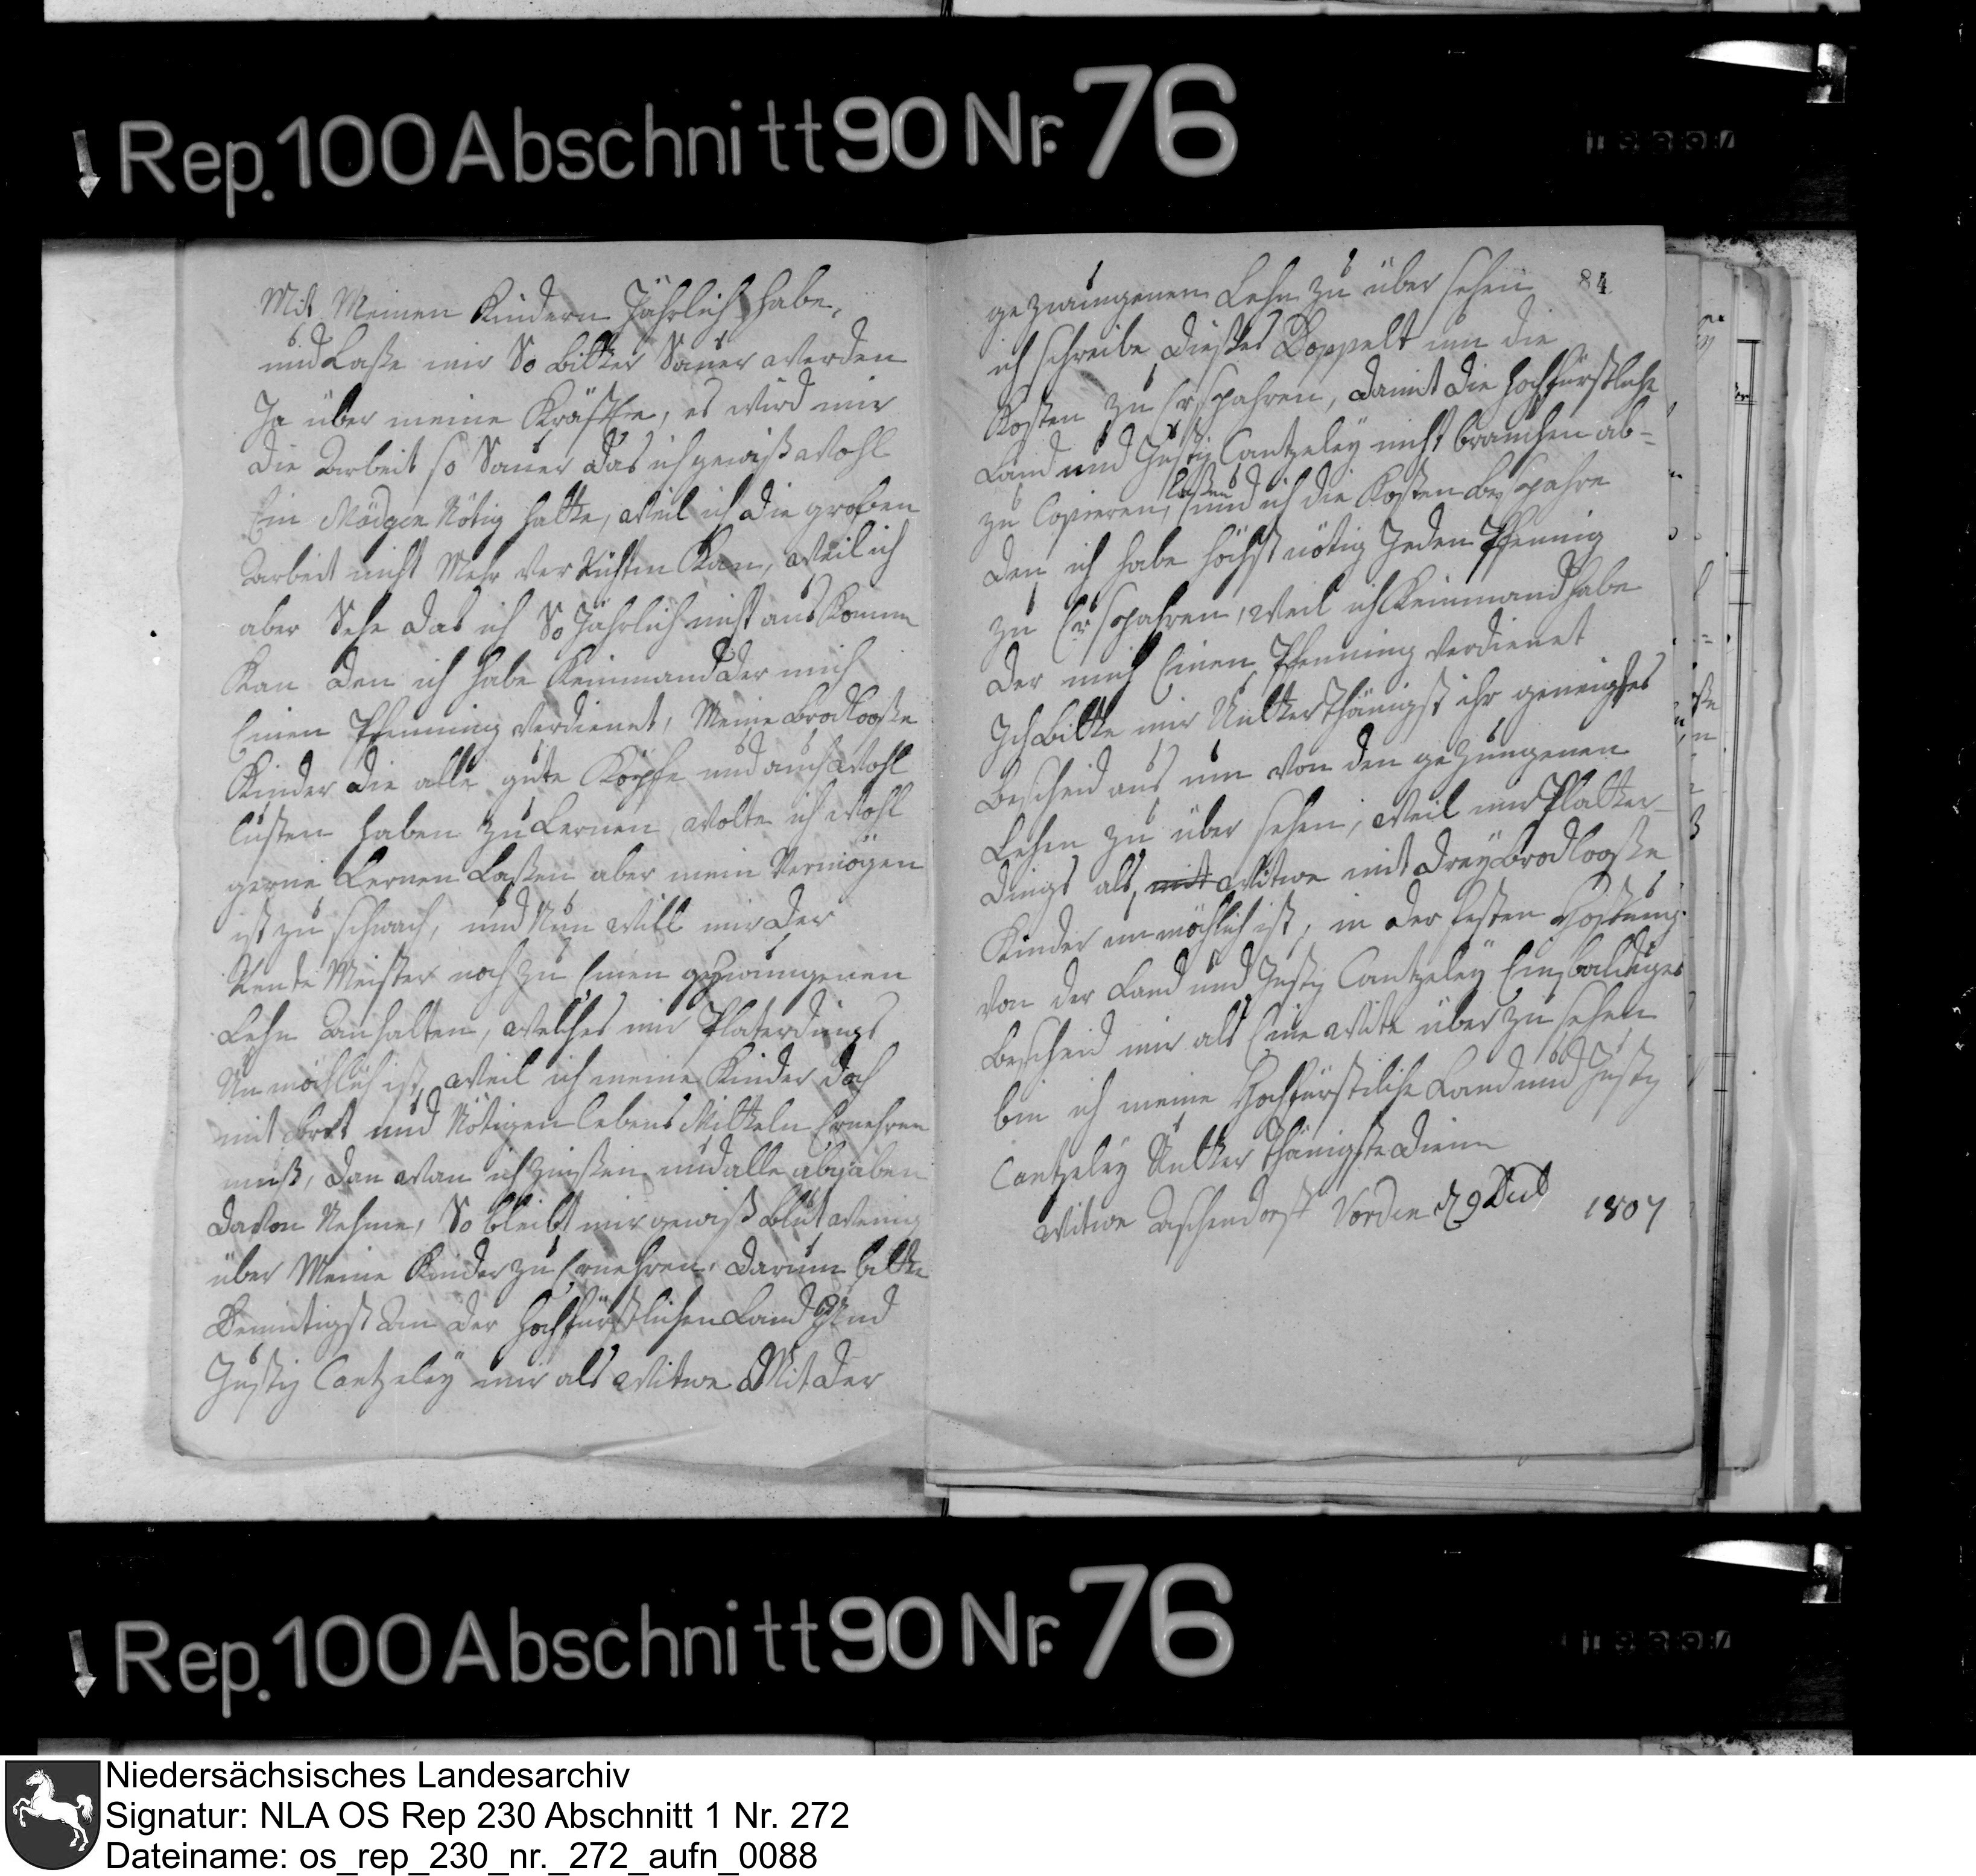 Rep. 100 Abschnitt 90 Nr. 76
Mit Meinen Kindern Jährlich habe,
und Laße mir So bitter Sauer werden
Ja über meine Kräffte, es wird mir
die Arbeit so Sauer das ich gewiß wohl
Ein Mädgen Nötig hatte, weil ich die groben
Arbeit nicht Mehr ver Richten Kan, weil ich
aber Sehe das ich So Jährlich nicht aus Komm
Kan den ich habe Keinmand der mich
Einen Pfenning verdienet, Meine brodlooße
Kinder die alle gute Köpfe und auch wohl
lüsten haben zu Lernen wolte ich wohl
gerne Lernen Laßen aber mein Vermögen
ist zu schwach, und Nun will mir der
Rente Meister noch zu Einen gezwungenen
Lehn Anhalten, welches mir Platerdings
Un möchlich ist, weil ich meine Kinder doch
mit brot und Nötigen lebens Mitteln Ernehren
muß, dan wan ich Zinßen und alle abgaben
davon Nehme, So bleibt mir gewiß blut wenig
über Meine Kinder zu Ernehren, darum bitte
Demütigst An der Hochfürstlichen Land Und
Justiz Cantzeley mir als Witwe Mit der
84
gezwungenen Lehn zu über sehen
ich schreibe dießes Doppelt um die
Kosten zu Erspahren, damit die Hochfürstliche
Land und Justiz Cantzeley nicht brauchen ab-
zu Copieren, laßen und ich die Kosten bespahre
den ich habe höchst nötig Jeden Pfennig
zu Erspahren, weil ich Keinmand habe
der mich Einen Pfenning verdienet
Ich bitte mir Unterthänigst ihr geneigtes
bescheid aus um von den gezungenen
Lehen zu über sehen, weil mir Platter-
dings als, mit Witwe mit drey brodlooße
Kinder un möchlich ist, in der festen Hoffnung
von der Land und Justiz Cantzeley Ein baldiges
bescheid mir als Eine Witwe über zu sehen
bin ich meine Hochfürstliche Land und Justiz
Cantzeley Unter Thänigste Dienn
Witwe Aschendorff Vörden d 9 1807
Rep. 100 Abschnitt 90 Nr. 76
Niedersächsisches Landesarchiv
Signatur: NLA OS Rep 230 Abschnitt 1 Nr. 272
Dateiname: os_rep_230_nr._272_aufn_0088